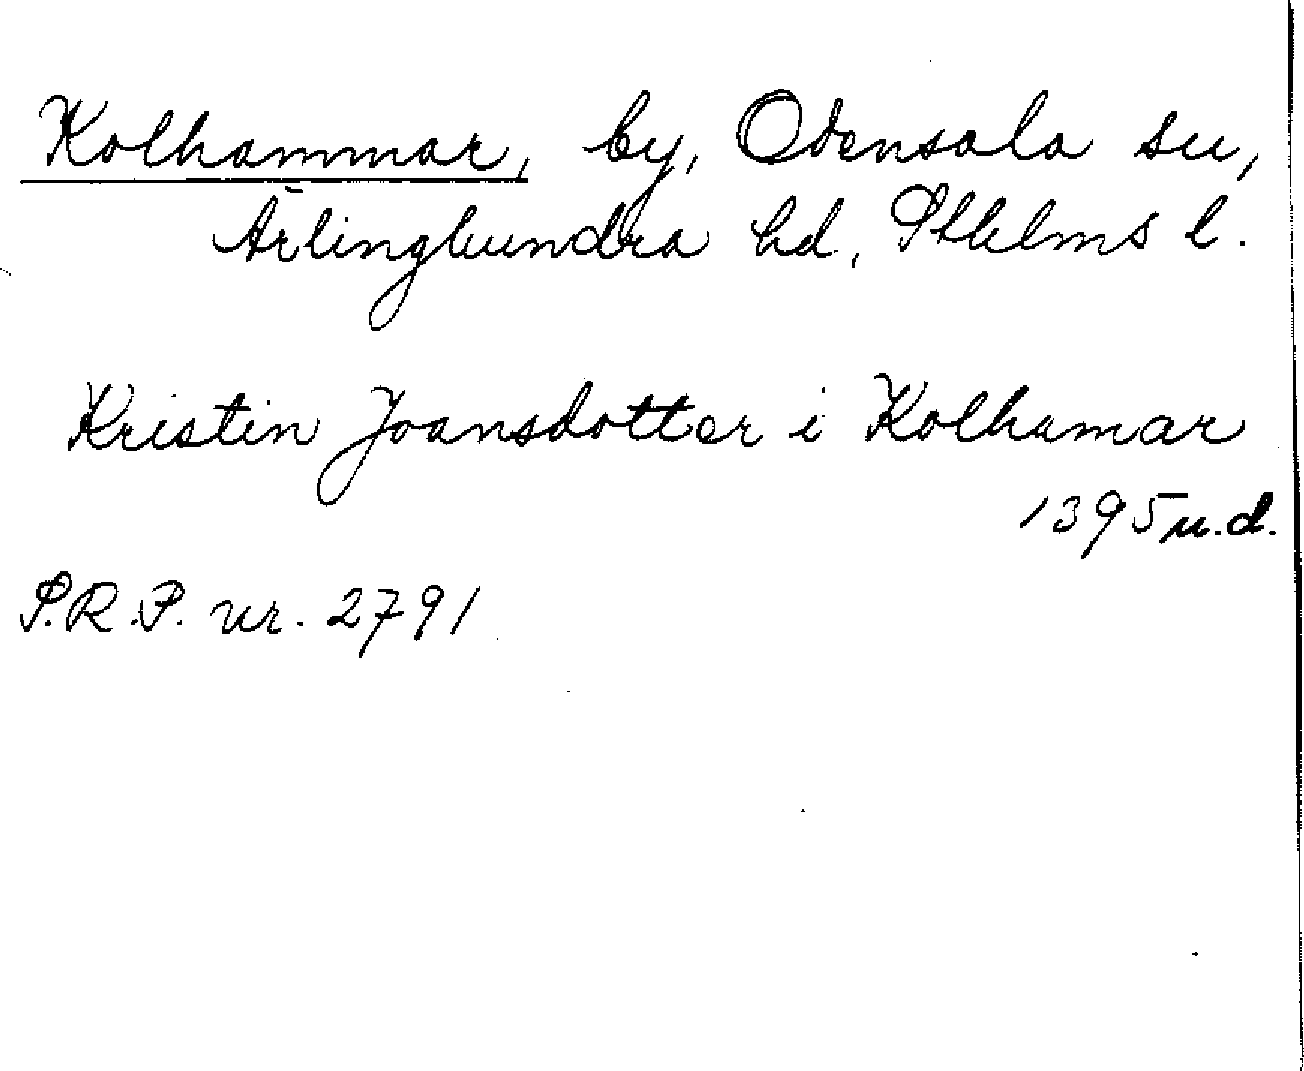 Kolhammar, by, Odensala sn,
Ärlinghundra hd, Sthlms l.
Kristin Joansdotter i Kolhamar
1395 u.d.
S.R.P. nr. 2791